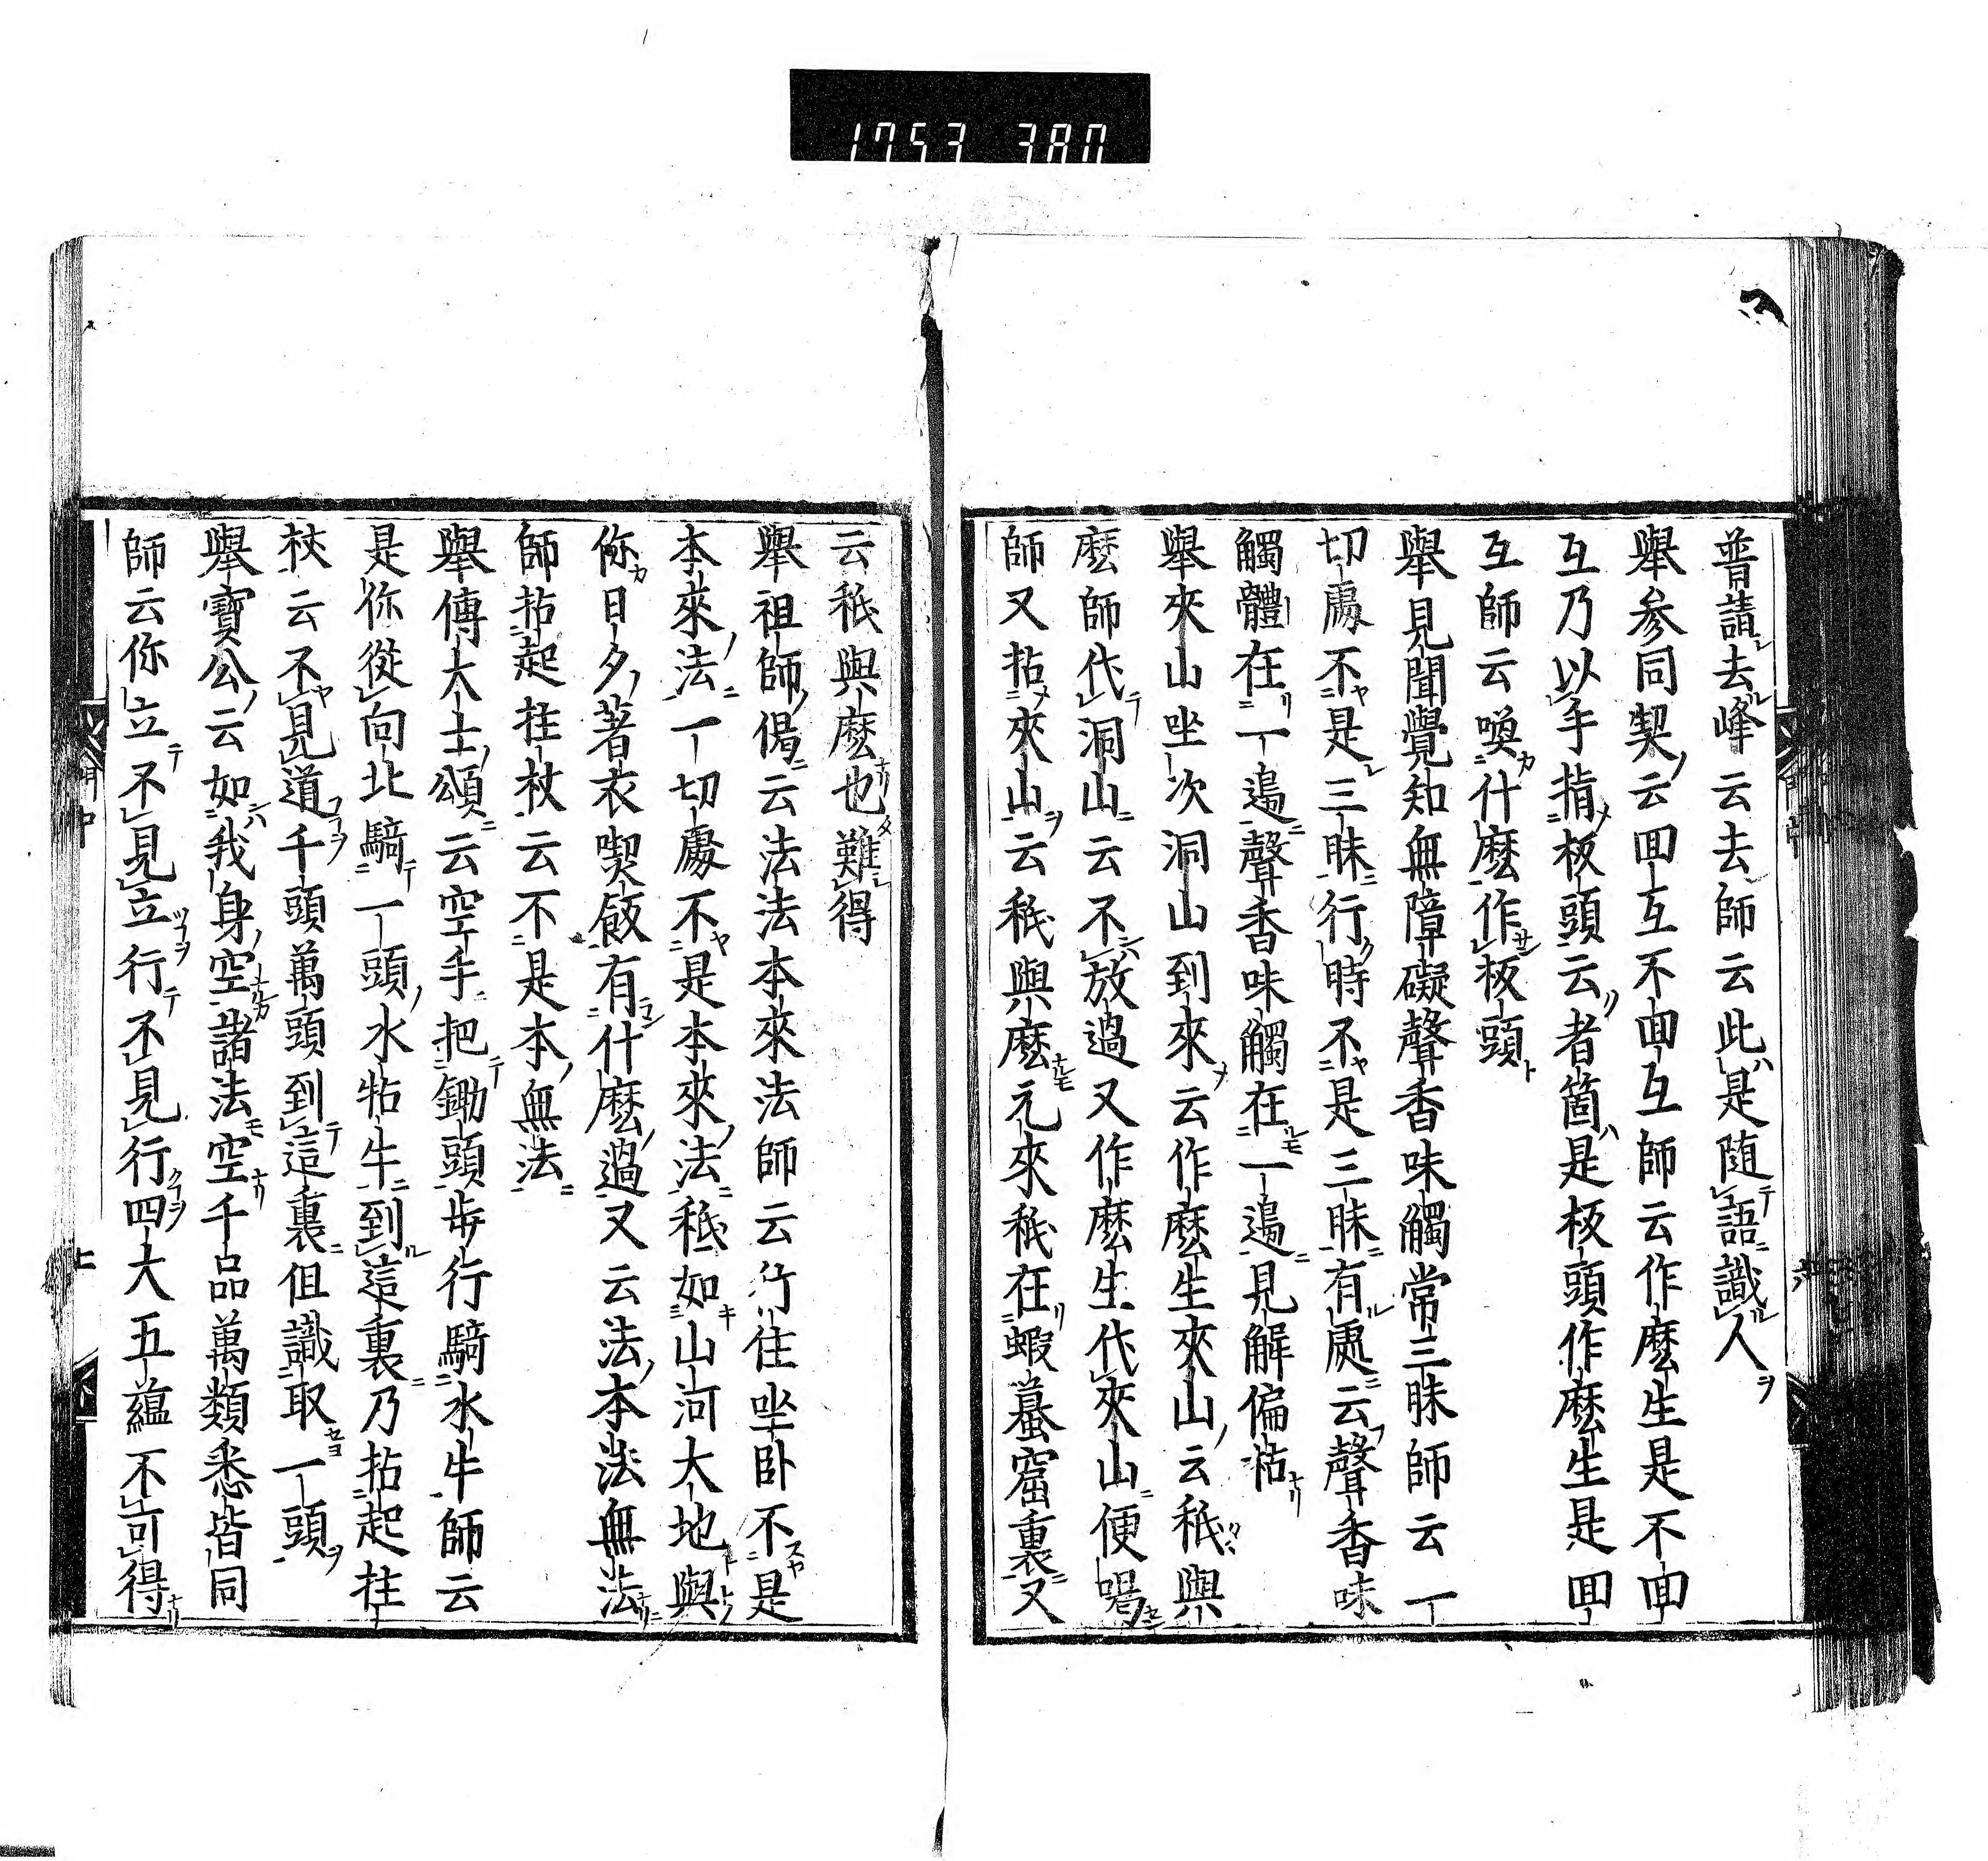 1753 380
普請去峰云去師云此是随語識人
舉参同契云囬互不囬互師云作麼生是不囬
互乃以手指板頭云者箇是板頭作麼生是囬
互師云喚什麼作板頭
舉見聞覺知無障礙聲香味觸常三昧師云一
切處不是三昧行時不是三昧有處云聲香味
觸體在一邊聲香味觸在一邊見解偏枯
舉夾山坐次洞山到來云作麼生夾山云秖與
麼師代洞山云不放過又作麼生代夾山便喝
師又拈夾山云秖與麼元來秖在蝦蟇窟裏又
云秖與麼也難得
舉祖師偈云法法本來法師云行住坐卧不是
本來法一切處不是本來法秖如山河大地與
你日夕著衣喫飯有什麼過又云法本法無法
師拈起拄杖云不是本無法
舉傅大士頌云空手把鋤頭步行騎水牛師云
是你從向北騎一頭水牯牛到這裏乃拈起拄
杖云不見道千頭萬頭到這裏但識取一頭
舉寶公云如我身空諸法空千品萬類悉皆同
師云你立不見立行不見行四大五藴不可得